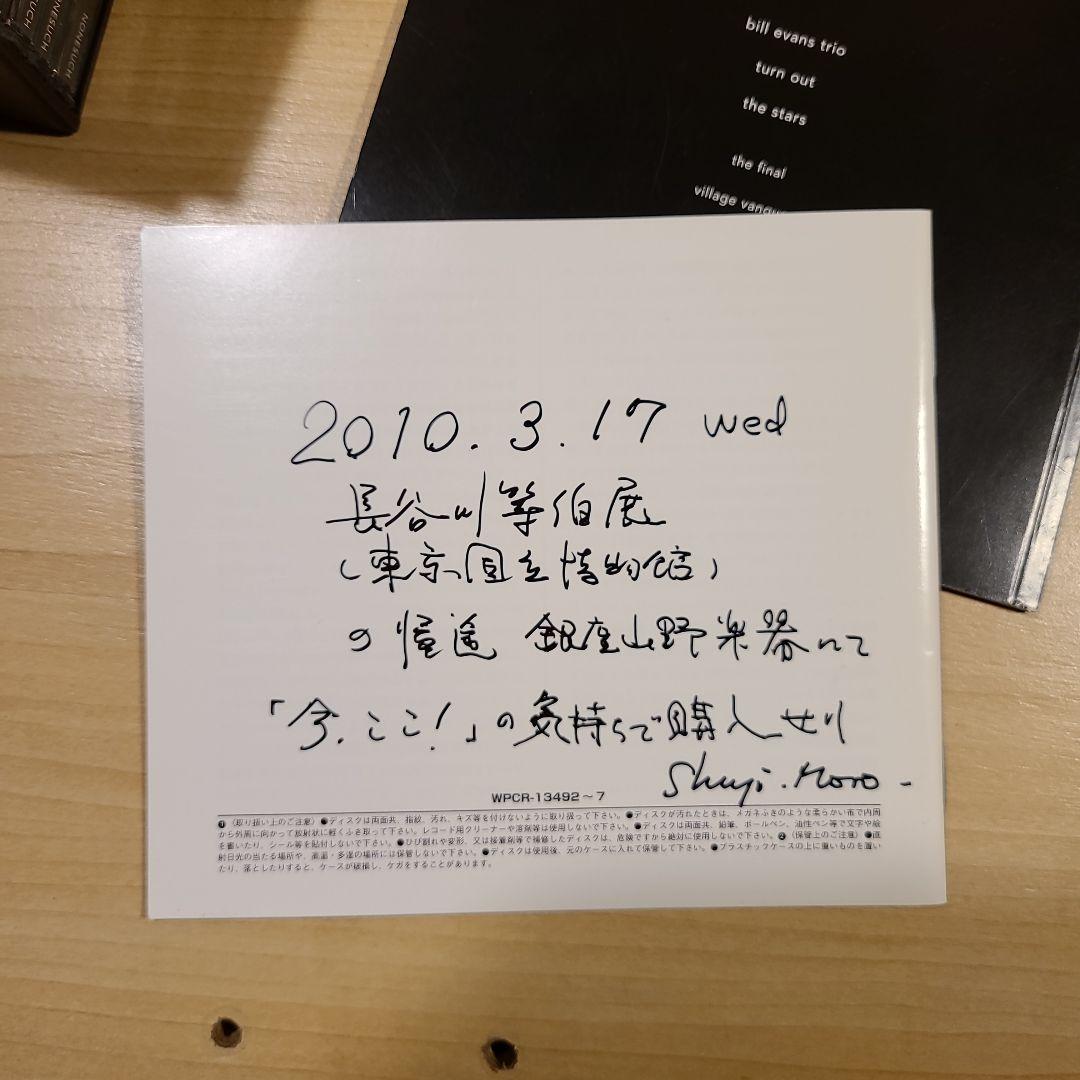 NONESUCH
NONESUCH
NONESUCH
bill evans trio
turn out
the stars
the final
village vangu
2010.3.17 wed
長谷川等伯展
(東京国立博物館)
の帰途 銀座山野楽器にて
「今、ここ!」の気持ちで購入せり
Shuji.Moro
WPCR-13492～7
❶（取り扱い上のご注意）●ディスクは両面共、指紋、汚れ、キズ等を付けないように取り扱って下さい。●ディスクが汚れたときは、メガネふきのような柔らかい布で内周
から外周に向かって放射状に軽くふき取って下さい。レコード用クリーナーや溶剤等は使用しないで下さい。●ディスクは両面共、鉛筆、ボールペン、油性ペン等で文字や絵
を書いたり、シール等を貼付しないで下さい。●ひび割れや変形、又は接着剤等で補修したディスクは、危険ですから絶対に使用しないで下さい。❷（保管上のご注意）●直
射日光の当たる場所や、高温・多湿の場所には保管しないで下さい。●ディスクは使用後、元のケースに入れて保管して下さい。●プラスチックケースの上に重いものを置い
たり、落としたりすると、ケースが破損し、ケガをすることがあります。